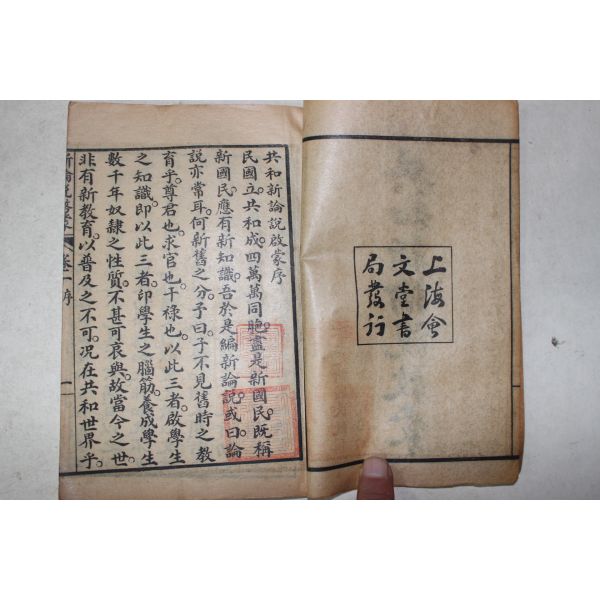 上海會
文堂書
局發行
共和新論說啟蒙序
民國立。共和成。四萬萬同胞。盡是新國民。既稱
新國民。應有新知識。吾於是編新論說。或曰。論
說亦常耳。何新舊之分。予曰。子不見舊時之教
育乎。尊君也。求官也。干祿也。以此三者。啟學生
之知識。即以此三者。印學生之腦筋。養成學生
數千年奴隸之性質。不甚可哀與。故當今之世。
非有新教育。以普及之不可。況在共和世界乎。
新論說啟蒙 卷一 序 一